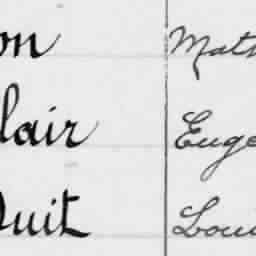 on Math
lair Euge
Duit Loui